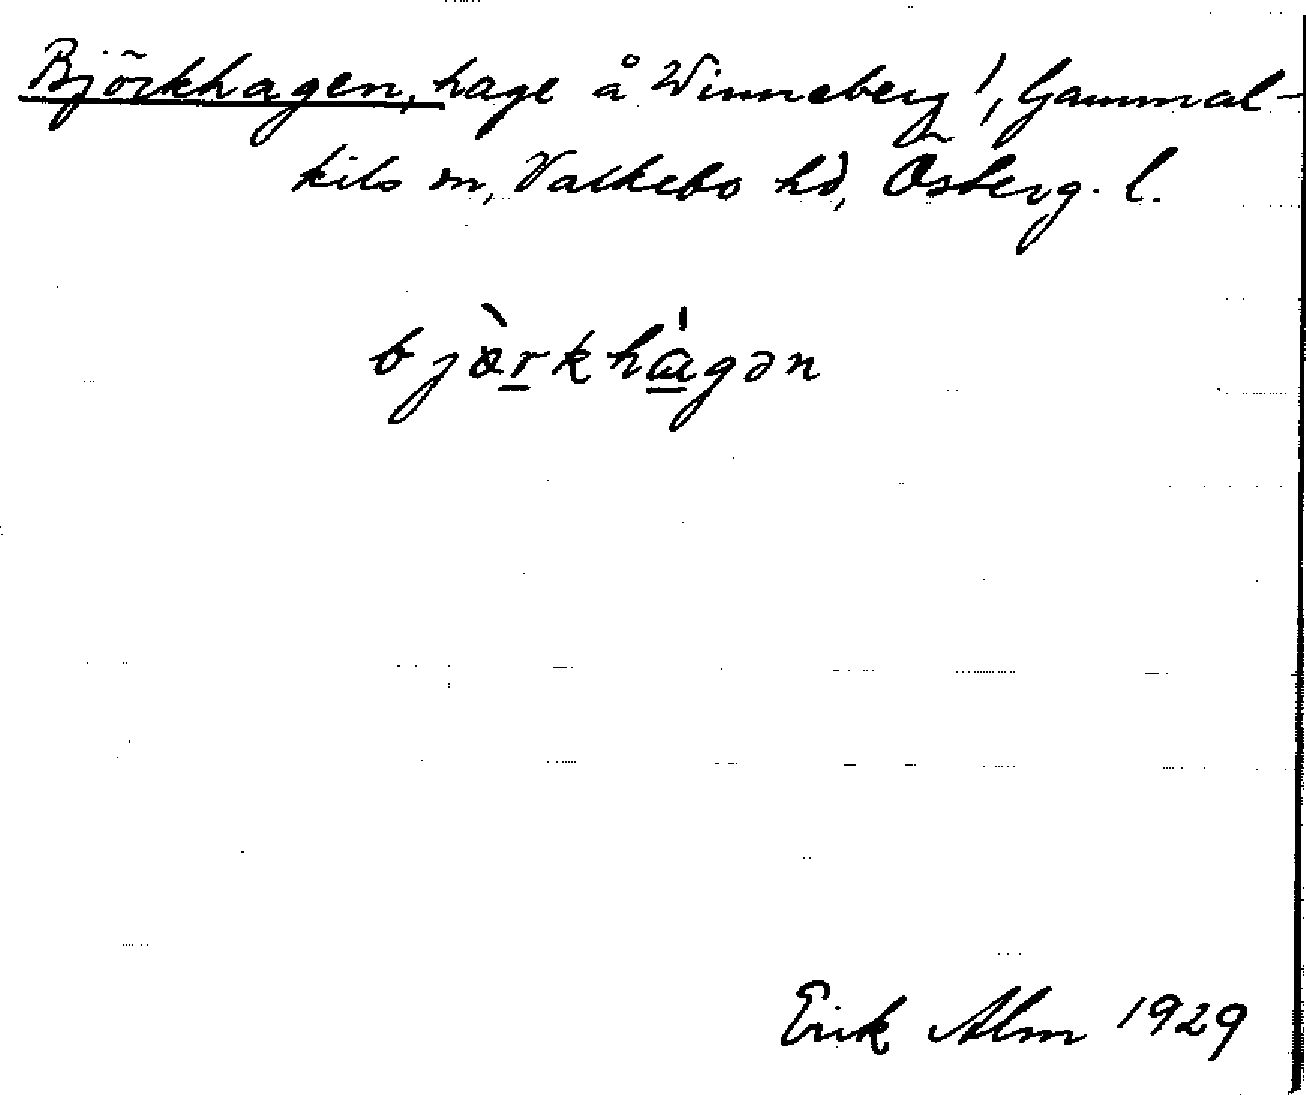 Björkhagen, hage å Winneberg 1, Gammal-
kils sn, Valkebo hd, Österg. l.
bjæ̀rkhа̍gən
Erik Alm 1929